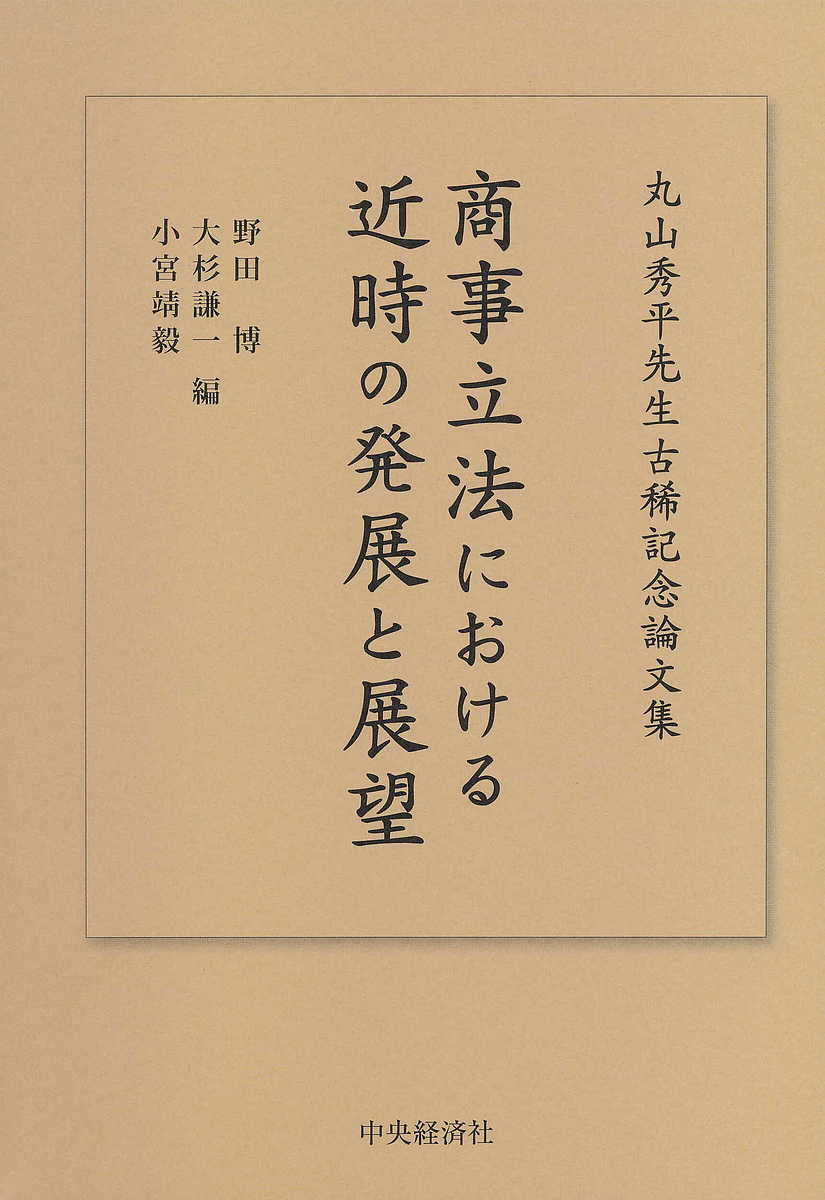 丸山秀平先生古稀記念論文集
商事立法における
近時の発展と展望
野田　博
大杉謙一 編
小宮靖毅
中央経済社